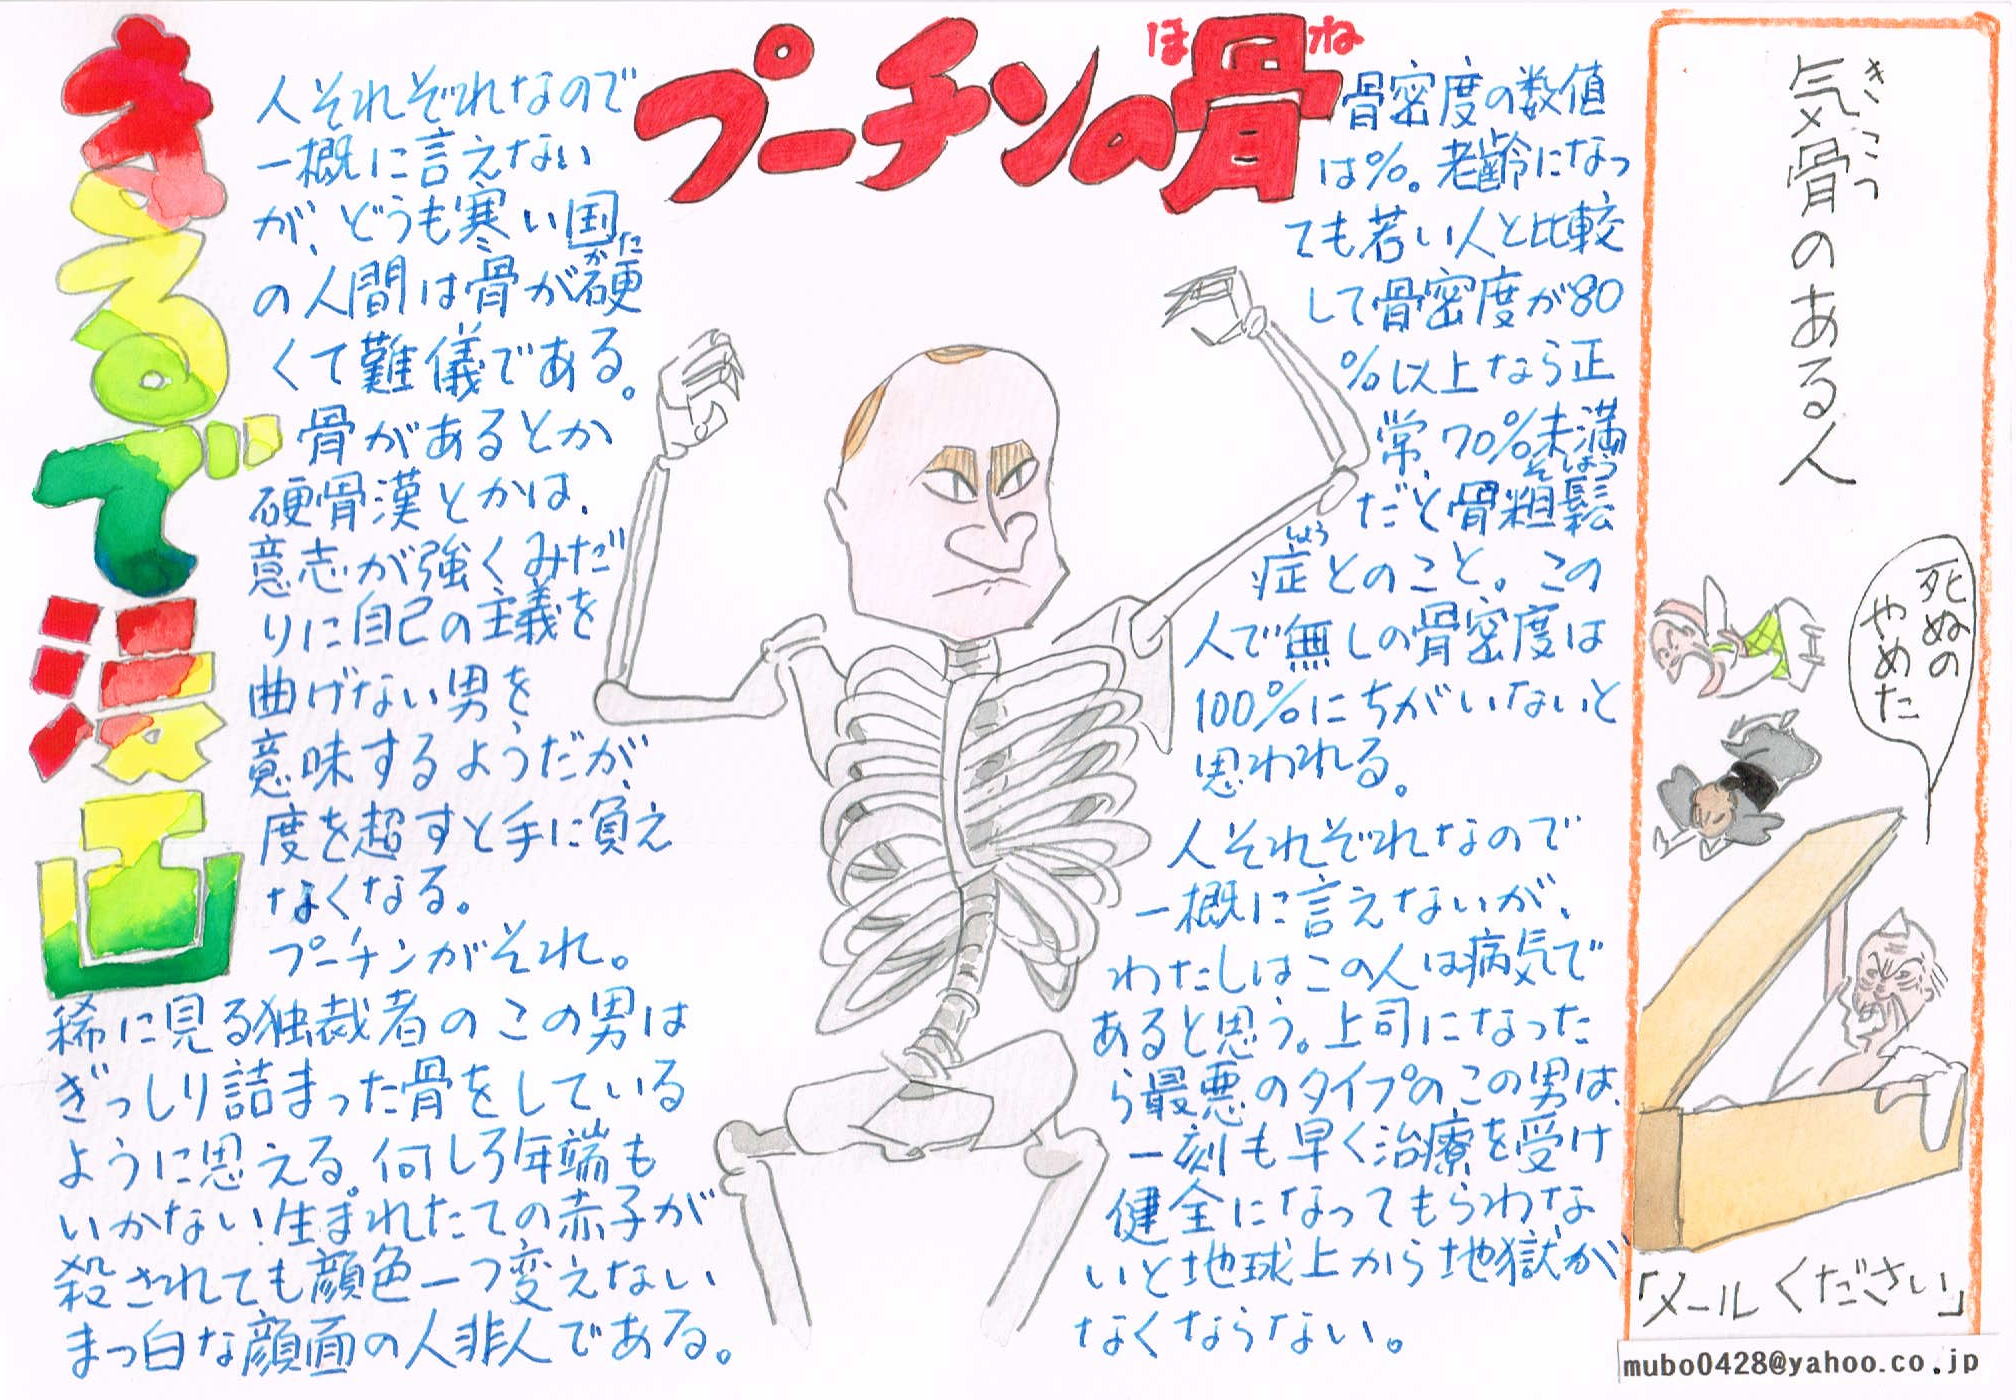 まるで漫画
プーチンの骨
ほね
人それぞれなので
一概に言えない
が、どうも寒い国
の人間は骨が硬
かた
くて難儀である。
骨があるとか
硬骨漢とかは、
意志が強くみだ
りに自己の主義を
曲げない男を
意味するようだが、
度を超すと手に負え
なくなる。
プーチンがそれ。
稀に見る独裁者のこの男は
ぎっしり詰まった骨をしている
ように思える。何しろ年端も
いかない!生まれたての赤子が
殺されても顔色一つ変えない
まっ白な顔面の人非人である。
骨密度の数値
は%。老齢になっ
ても若い人と比較
して骨密度が80
%以上なら正
常、70%未満
だと骨粗鬆
そしょう
症とのこと。この
しょう
人で無しの骨密度は
100%にちがいないと
思われる。
人それぞれなので
一概に言えないが、
わたしはこの人は病気で
あると思う。上司になった
ら最悪のタイプのこの男は、
一刻も早く治療を受け
健全になってもらわな
いと地球上から地獄が
なくならない。
気骨のある人
きこつ
死ぬの
やめた
「メールください」
mubo0428@yahoo.co.jp